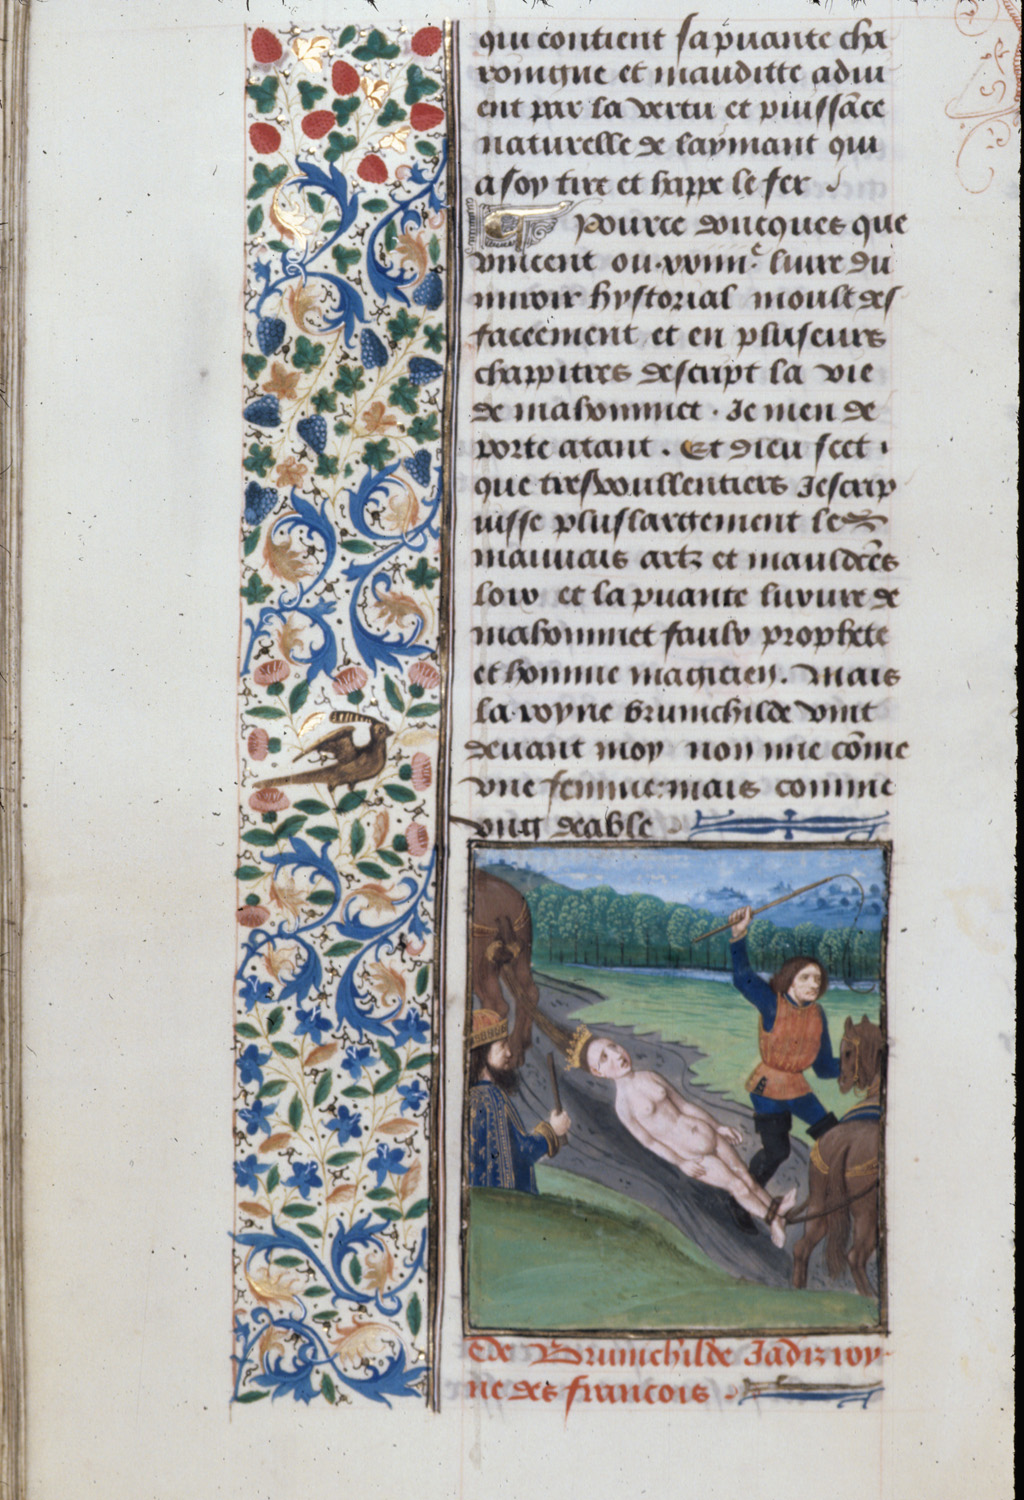 qui contient sa puante cha
roingne et mauditte adui
ent par la vertu et puissāce
naturelle de laymant qui
a soy tire et happe le fer .
Et pource doncques que
vincent ou .xxiiiie livre du
miroir hystorial moult des
faceement et en pluseurs
chappitres descript la vie
de mahommet . Je men de
porte atant . Et dieu scet .
que tresvoullentiers Jescrip
uisse pluslargement les
mauuais artz et mauldictes
loix et la puante luxure de
mahommet faulx prophete
et homme magicien . Mais
la royne Brunichilde vint
deuant moy non mie cōme
vne femme: mais comme
vng deable
De Brunichilde Jadiz roy
ne des francois